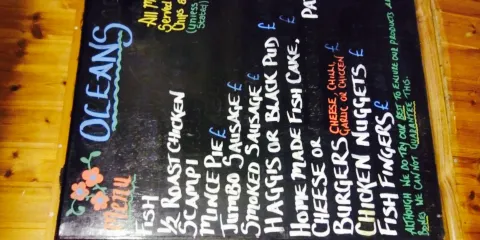 OCEANS
Menu
All M
Served
Chips &
(unless
Stated)
FISH
1/2 ROAST CHICKEN
SCAMPI
MINCE PIE £
JUMBO SAUSAGE £
SMOKED SAUSAGE £
HAGGIS OR BLACK PUD £
HOME MADE FISH CAKE. £
CHEESE OR PA
BURGERS CHEESE, CHILLI, £
GARLIC OR CHICKEN
CHICKEN NUGGETS £
FISH FINGERS £
ALTHOUGH WE DO TRY OUR BEST TO ENSURE OUR PRODUCTS
BONES WE CAN NOT GUARANTEE THIS.